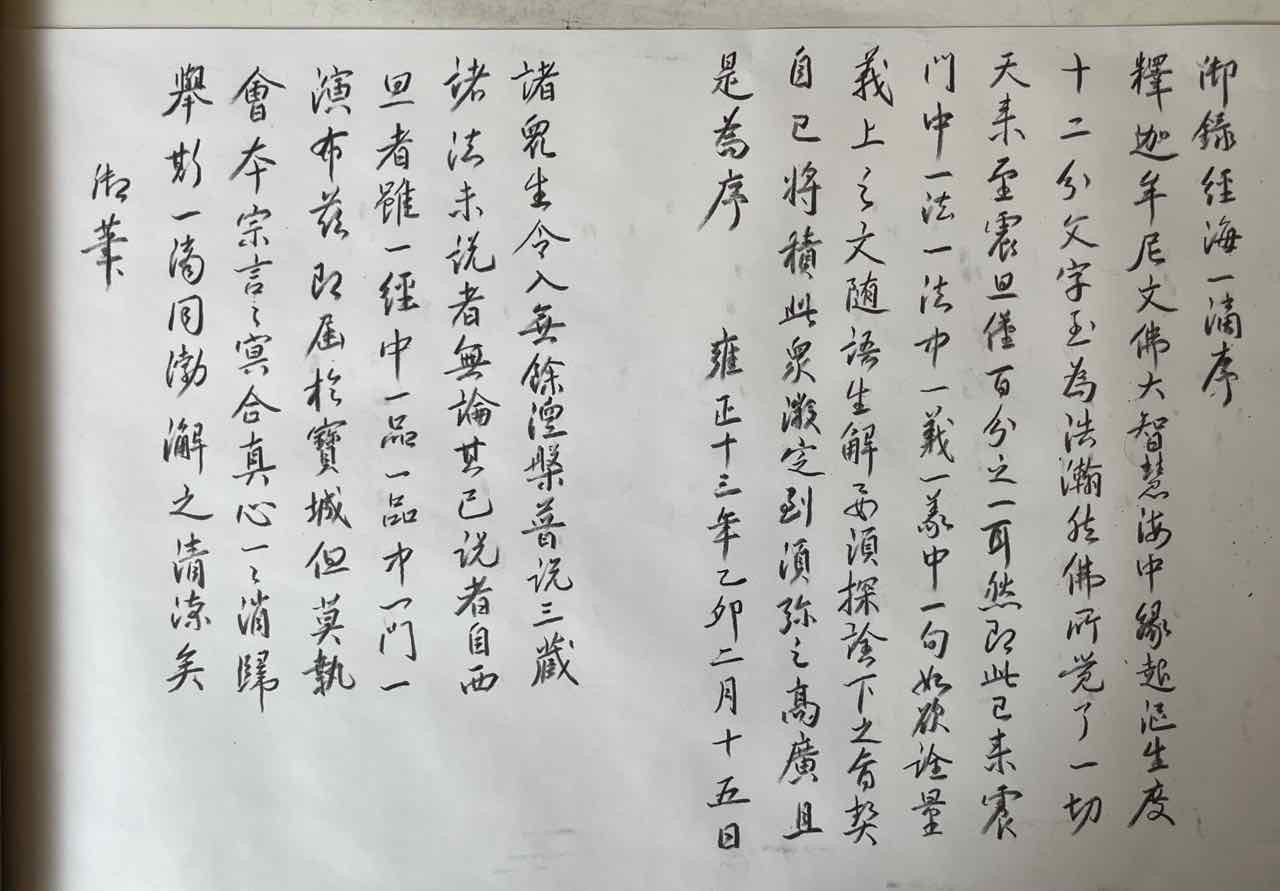 御錄經海一滴序
釋迦牟尼文佛大智慧海中緣起泛生度
十二分文字至為浩瀚然佛所觉了一切
天来至震旦僅百分之一耳然即此已来震
門中一法一法中一義一義中一句如欲詮量
義上之文随語生解要須探詮下之旨契
自已将積此衆澂定到須弥之高廣且
是為序 雍正十三年乙卯二月十五日
諸衆生令入無餘涅槃普说三藏
諸法未说者無論其已说者自西
旦者雖一經中一品一品中一門一
演布兹即届於寶城但莫執
會本宗言〻冥合真心一〻消歸
舉斯一滴同渤澥之清涼矣
御筆